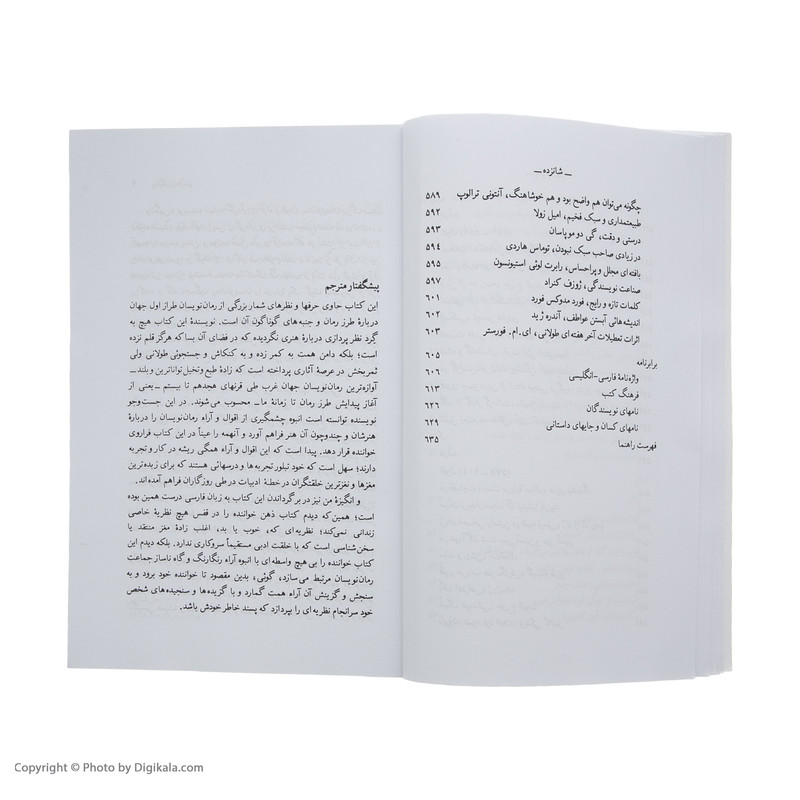 ــ شانزده ــ
چگونه می‌توان هم واضح بود و هم خوشاهنگ، آنتونی ترالوپ ۵۸۹
طبیعتمداری و سبک فخیم، امیل زولا ۵۹۲
درستی و دقت، گی دو موپاسان ۵۹۳
در زیادی صاحب سبک نبودن، توماس هاردی ۵۹۴
بافته‌ای مجلل و پراحساس، رابرت لوئی استیونسون ۵۹۵
صناعت نویسندگی، ژوزف کنراد ۵۹۷
کلمات تازه و رایج، فورد مدوکس فورد ۶۰۱
اندیشه‌هائی آبستن عواطف، آندره ژید ۶۰۲
اثرات تعطیلات آخر هفته‌ای طولانی، ای.ام. فورستر ۶۰۳
برابرنامه ۶۰۵
واژه‌نامهٔ فارسی-انگلیسی ۶۰۶
فرهنگ کتب ۶۱۳
نامهای نویسندگان ۶۲۶
نامهای کسان و جایهای داستانی ۶۲۹
فهرست راهنما ۶۳۵
پیشگفتار مترجم
این کتاب حاوی حرفها و نظرهای شمار بزرگی از رمان‌نویسان طراز اول جهان
دربارهٔ طرز رمان و جنبه‌های گوناگون آن است. نویسندهٔ این کتاب هیچ به
گِرد نظر پردازی دربارهٔ هنری نگردیده که در فضای آن بسا که هرگز قلم نزده
است؛ بلکه دامن همت به کمر زده و به کنکاش و جستجوئی طولانی ولی
ثمربخش در عرصهٔ آثاری پرداخته است که زادهٔ طبع و تخیل تواناترین و بلند ــ
آوازه‌ترین رمان‌نویسان جهان غرب طی قرنهای هجدهم تا بیستم ــ یعنی از
آغاز پیدایش طرز رمان تا زمانهٔ ما ــ محسوب می‌شوند. در این جست‌وجو
نویسنده توانسته است انبوه چشمگیری از اقوال و آراء رمان‌نویسان را دربارهٔ
هنرشان و چندوچون آن هنر فراهم آورد و آنهمه را عیناً در این کتاب فراروی
خواننده قرار دهد. پیدا است که این اقوال و آراء همگی ریشه در کار و تجربه
دارند؛ سهل است که خود تبلور تجربه‌ها و درسهائی هستند که برای زبده‌ترین
مغزها و نغزترین خلقتگران در خطهٔ ادبیات در طی روزگاران فراهم آمده‌اند.
و انگیزهٔ من نیز در برگرداندن این کتاب به زبان فارسی درست همین بوده
است؛ همین‌که دیدم کتاب ذهن خواننده را در قفس هیچ نظریهٔ خاصی
زندانی نمی‌کند؛ نظریه‌ای که، خوب یا بد، اغلب زادهٔ مغز منتقد یا
سخن‌شناسی است که با خلقت ادبی مستقیماً سروکاری ندارد. بلکه دیدم این
کتاب خواننده را بی هیچ واسطه‌ای با انبوه آراء رنگارنگ و گاه ناساز جماعت
رمان‌نویسان مرتبط می‌سازد، گوئی، بدین مقصود تا خواننده خود برود و به
سنجش و گزینش آن آراء همت گمارد و با گزیده‌ها و سنجیده‌های شخص
خود سرانجام نظریه‌ای را بپردازد که پسند خاطر خودش باشد.
Copyright © Photo by Digikala.com